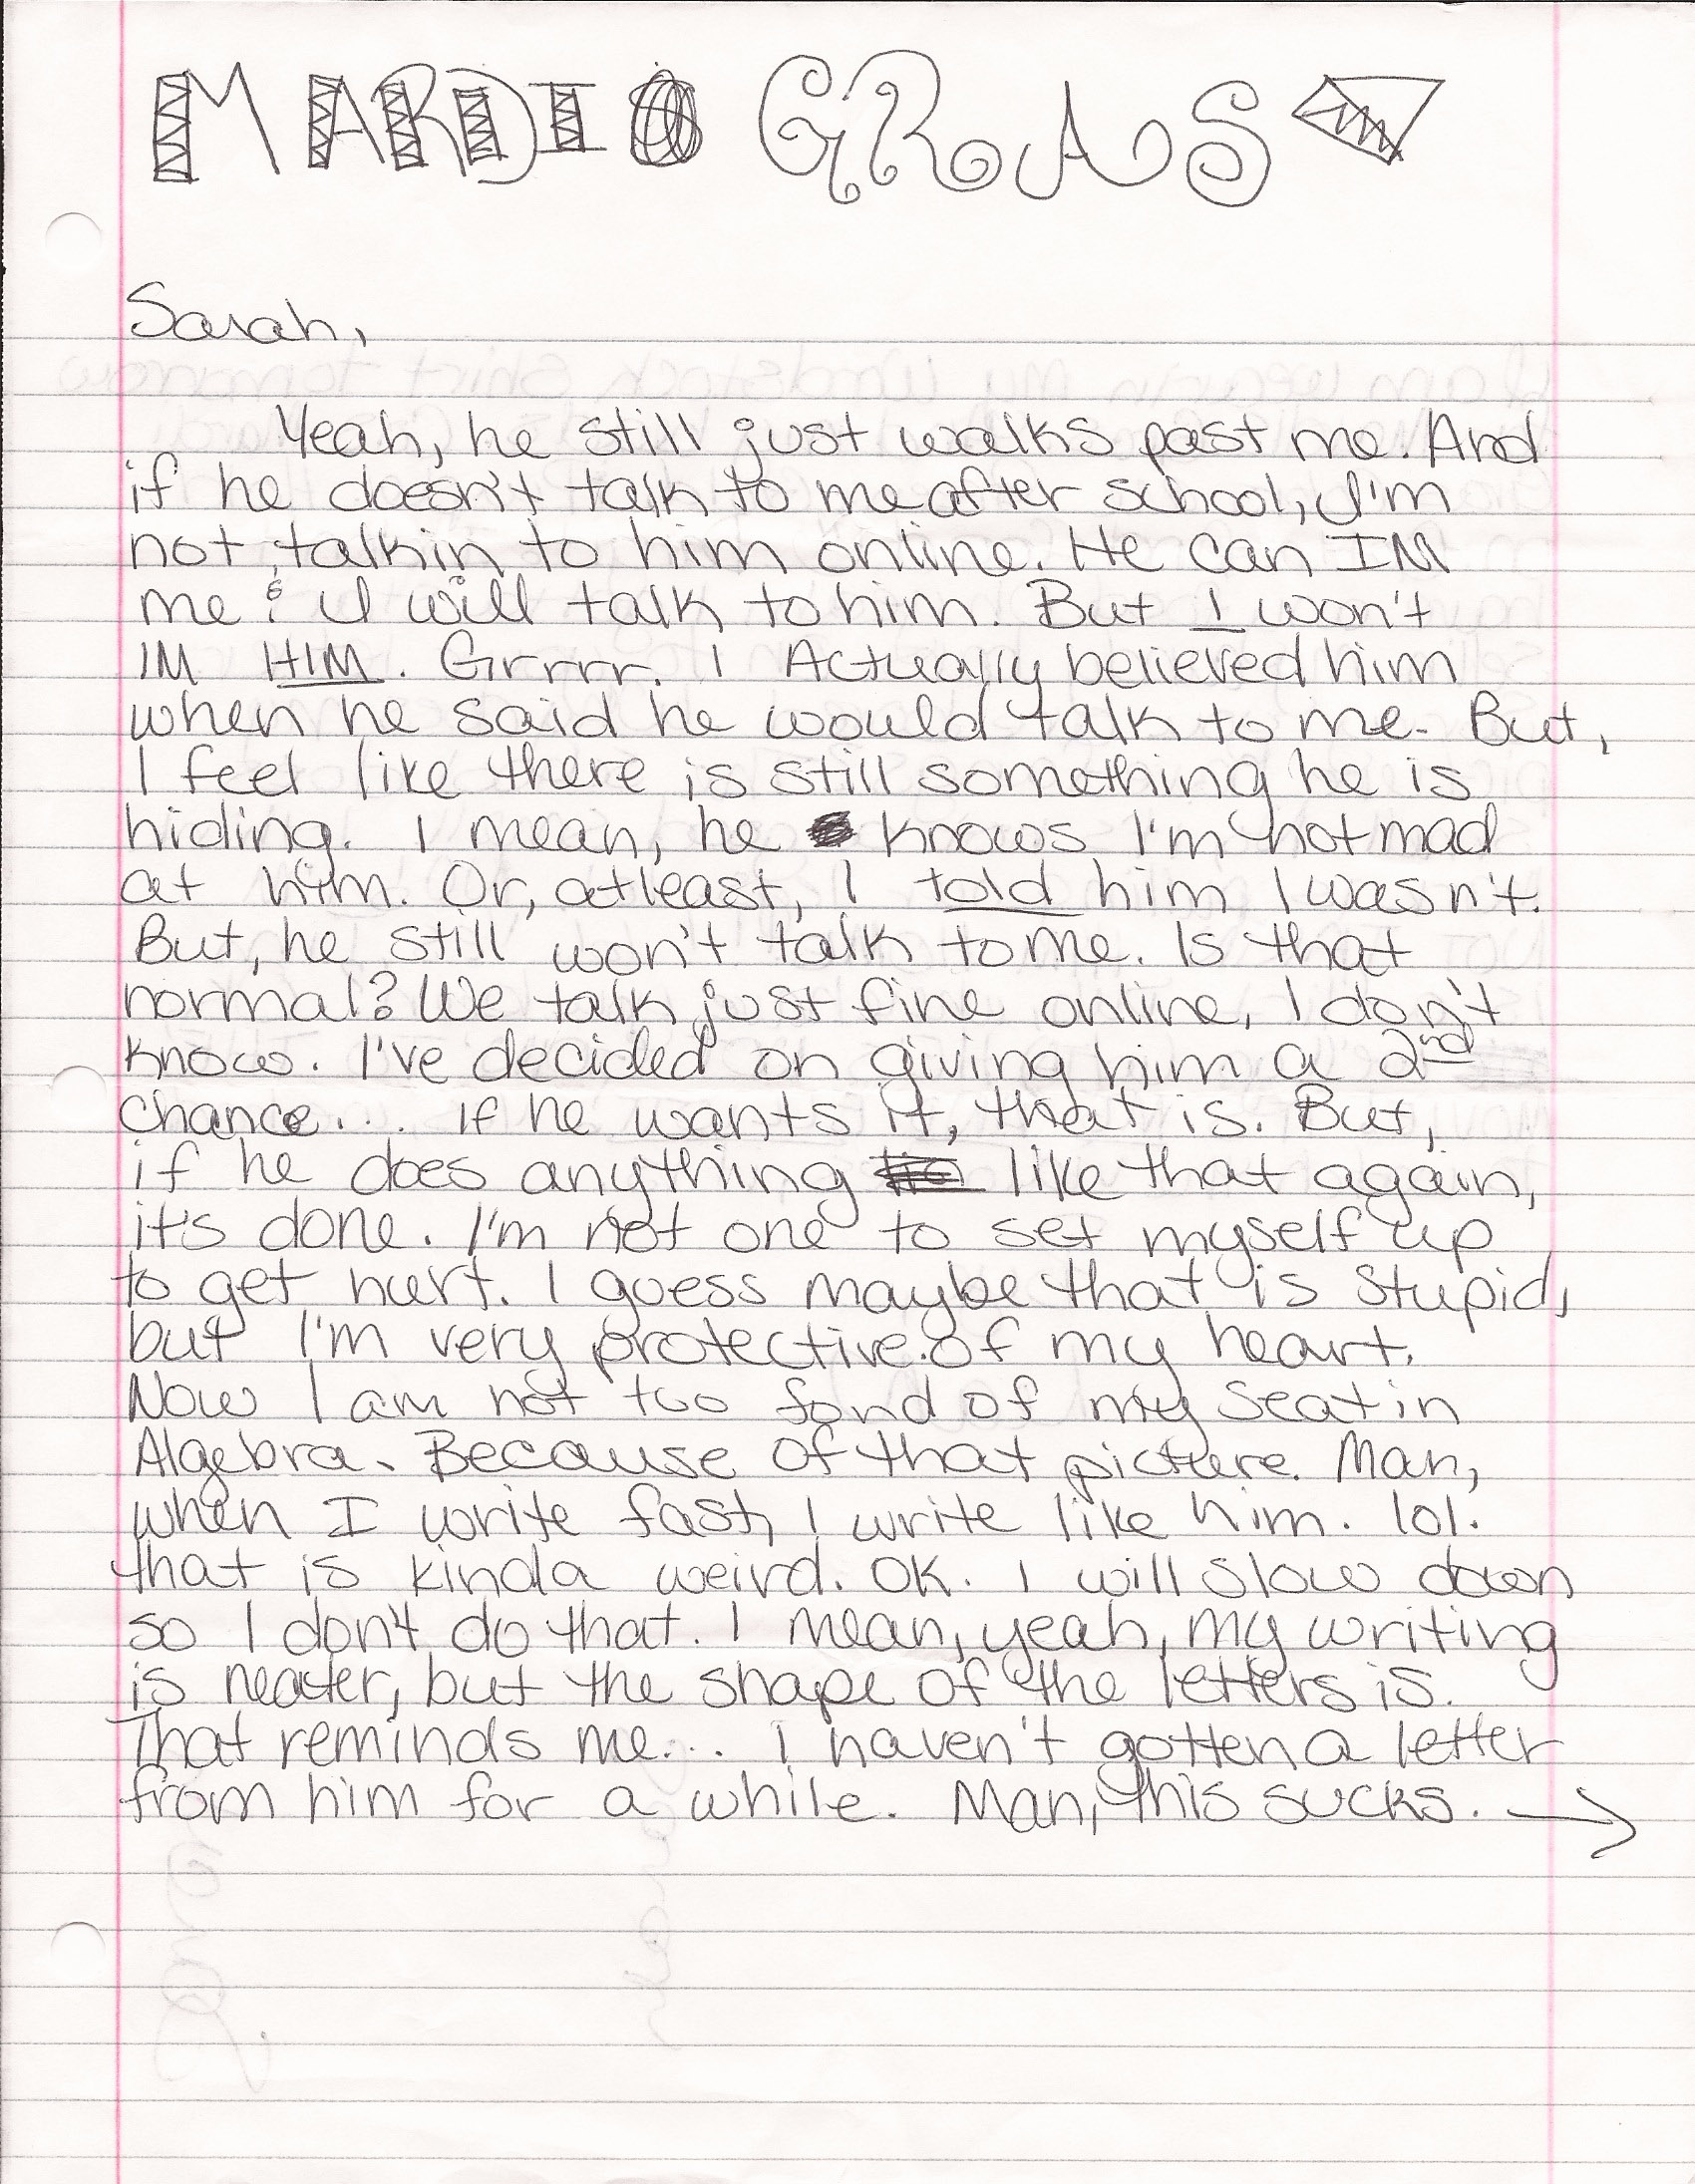 MARDI GRAS
Sarah,
Yeah, he still just walks past me. And
if he doesn't talk to me after school, I'm
not talkin to him online. He can IM
me & I will talk to him. But I won't
IM HIM. Grrrr. I Actually believed him
when he said he would talk to me. But,
I feel like there is still something he is
hiding. I mean, he knows I'm not mad
at him. Or, atleast, I told him I wasn't.
But, he still won't talk to me. Is that
normal? We talk just fine online, I don't
know. I've decided on giving him a 2nd
chance... If he wants it, that is. But,
if he does anything like that again,
it's done. I'm not one to set myself up
to get hurt. I guess maybe that is stupid,
but I'm very protective of my heart.
Now I am not too fond of my seat in
Algebra. Because of that picture. Man,
when I write fast, I write like him. lol.
that is kinda weird. OK. I will slow down
so I don't do that. I mean, yeah, my writing
is neater, but the shape of the letters is.
That reminds me... I haven't gotten a letter
from him for a while. Man, this sucks. →